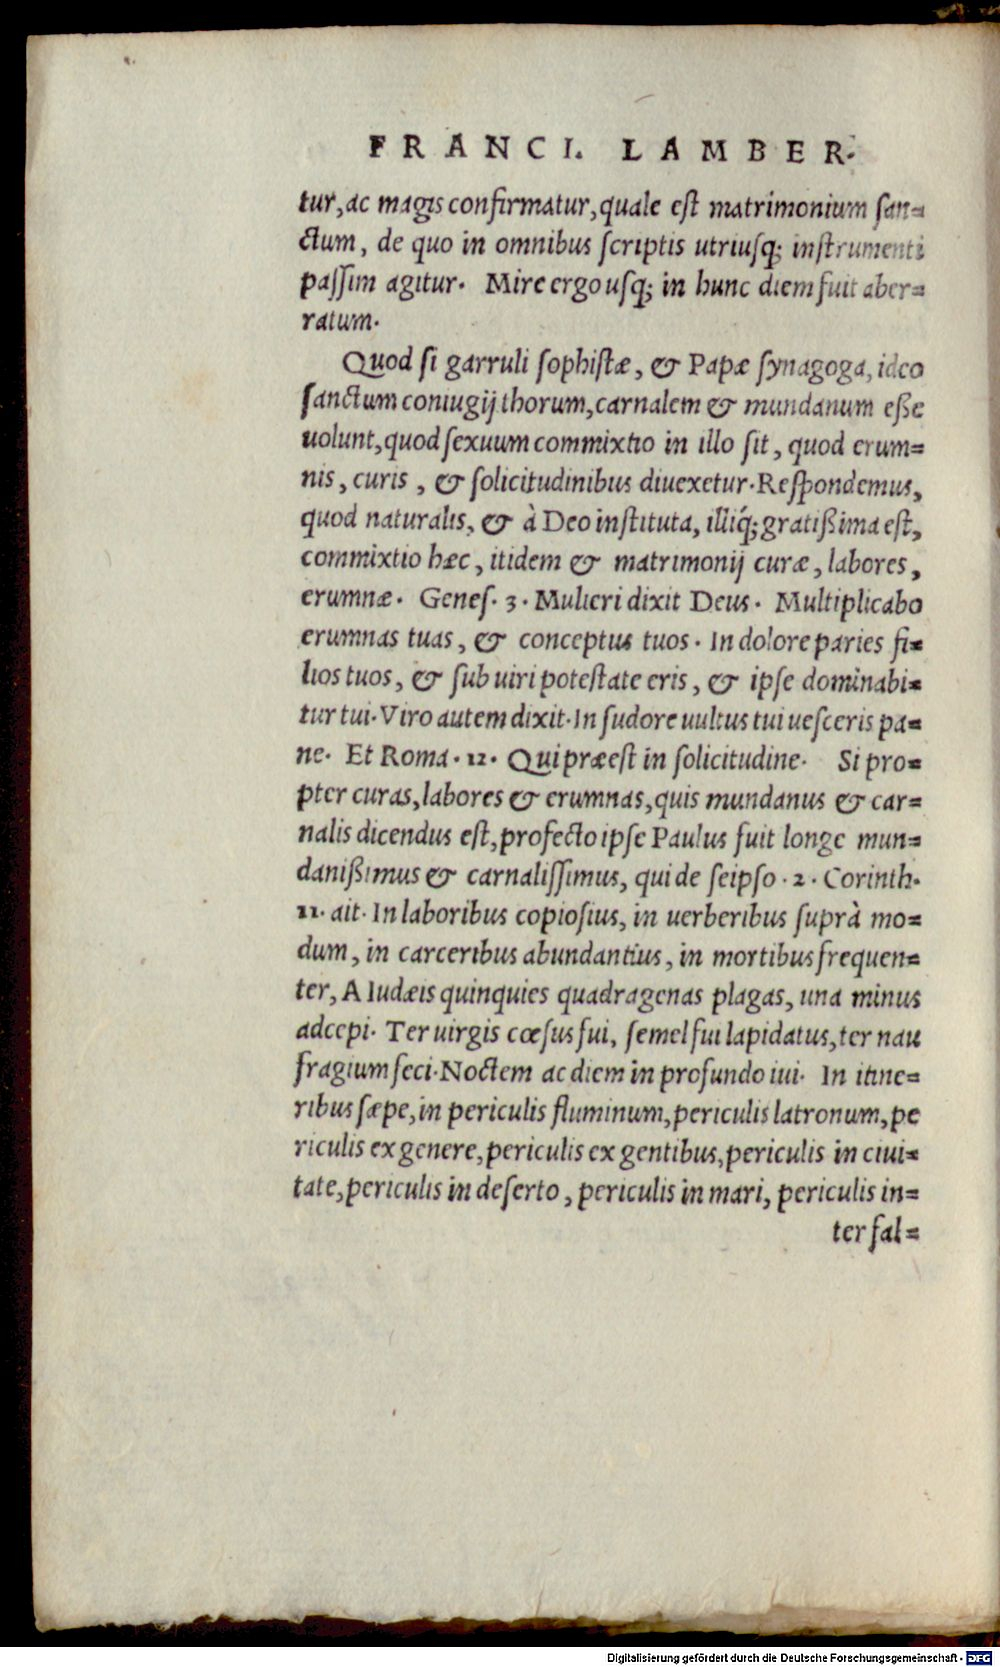 FRANCI. LAMBER.
tur, ac magis confirmatur, quale est matrimonium san=
ctum, de quo in omnibus scriptis utriusq; instrumenti
passim agitur. Mire ergo usq; in hunc diem fuit aber=
ratum.
Quod si garruli sophistæ, & Papæ synagoga, ideo
sanctum coniugij thorum, carnalem & mundanum eße
uolunt, quod sexuum commixtio in illo sit, quod erum=
nis, curis, & solicitudinibus diuexetur. Respondemus,
quod naturalis, & à Deo instituta, illiq́; gratißima est,
commixtio hæc, itidem & matrimonij curæ, labores,
erumnæ. Genes. 3. Mulieri dixit Deus. Multiplicabo
erumnas tuas, & conceptus tuos. In dolore paries fi=
lios tuos, & sub uiri potestate eris, & ipse dominabi=
tur tui. Viro autem dixit. In sudore uultus tui uesceris pa=
ne. Et Roma. 12. Qui præest in solicitudine. Si pro=
pter curas, labores & erumnas, quis mundanus & car=
nalis dicendus est, profecto ipse Paulus fuit longe mun=
danißimus & carnalissimus, qui de seipso. 2. Corinth.
11. ait. In laboribus copiosius, in uerberibus suprà mo=
dum, in carceribus abundantius, in mortibus frequen=
ter, A Iudæis quinquies quadragenas plagas, una minus
adcepi. Ter uirgis cœsus fui, semel fui lapidatus, ter nau
fragium feci. Noctem ac diem in profundo iui. In itine=
ribus sæpe, in periculis fluminum, periculis latronum, pe
riculis ex genere, periculis ex gentibus, periculis in ciui=
tate, periculis in deserto, periculis in mari, periculis in=
ter fal=
Digitalisierung gefördert durch die Deutsche Forschungsgemeinschaft - DFG